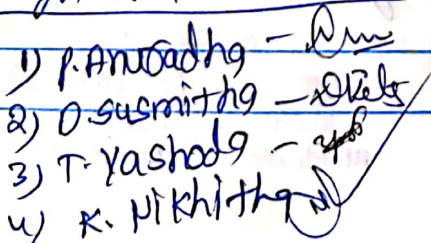 1) P. Anuradha -
2) O. Susmitha -
3) T. Yashoda -
4) K. Nikhitha